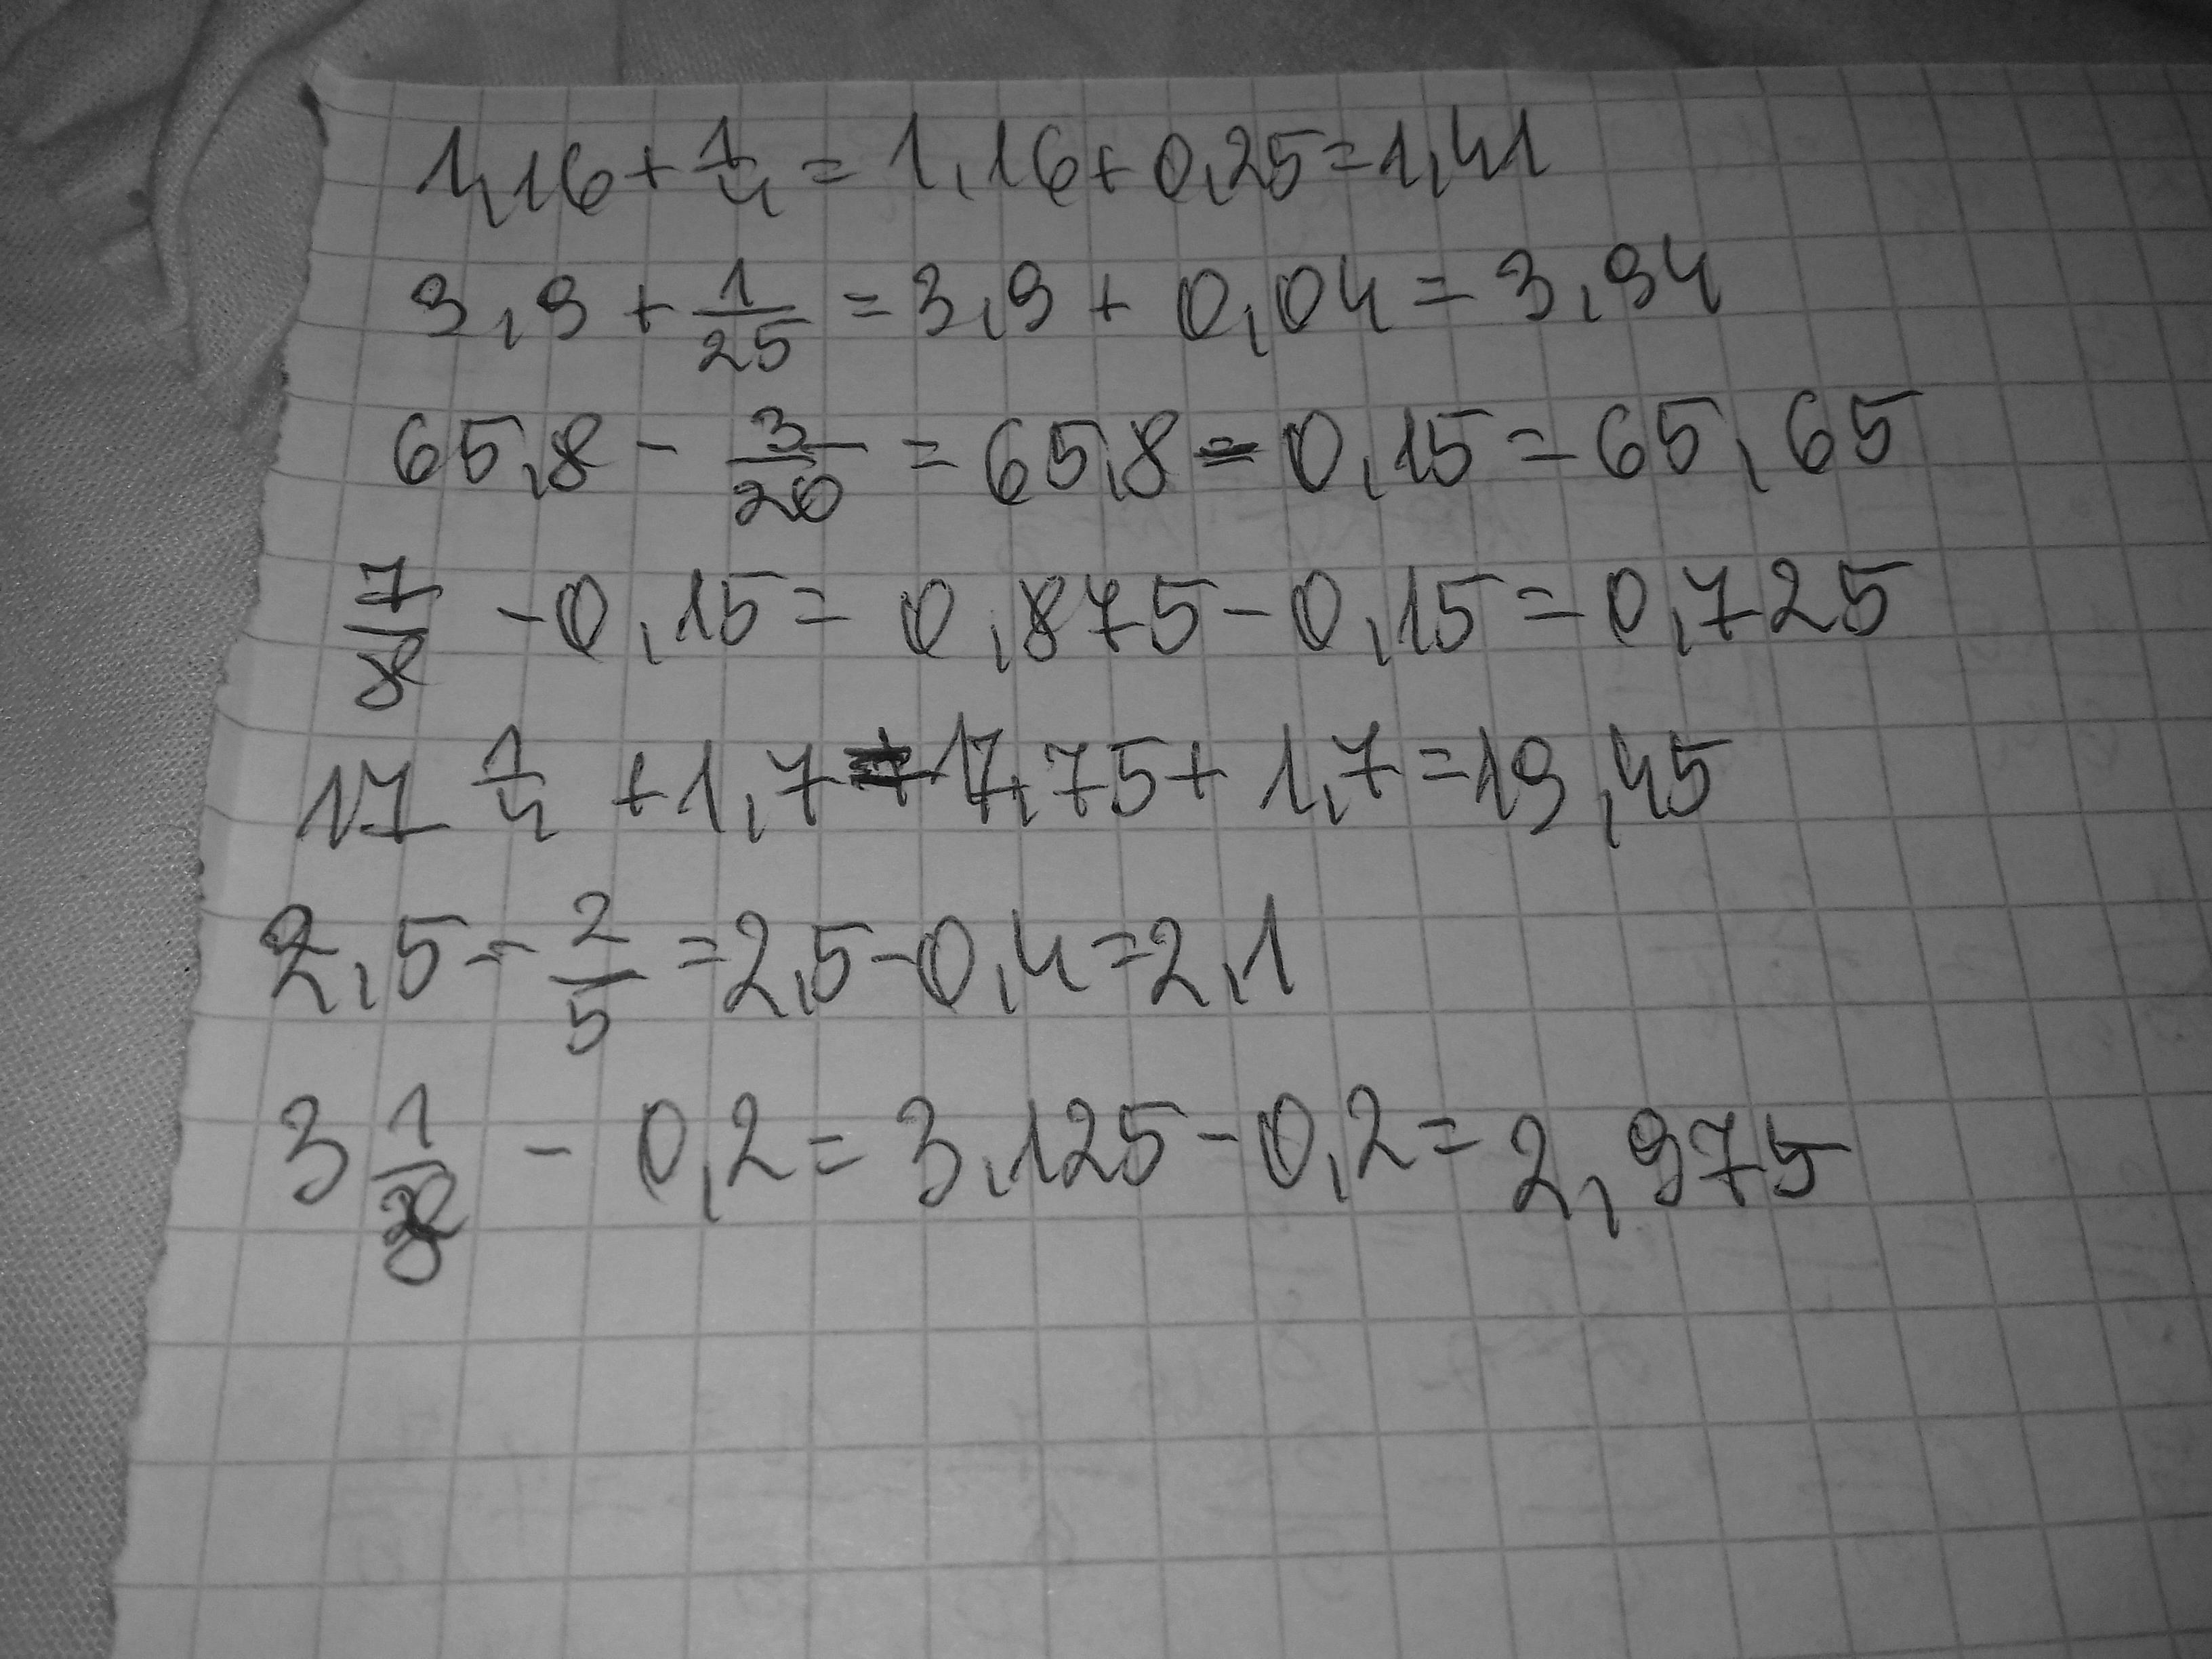 1,16 + 1/4 = 1,16 + 0,25 = 1,41
3,9 + 1/25 = 3,9 + 0,04 = 3,94
65,8 - 3/20 = 65,8 - 0,15 = 65,65
7/8 - 0,15 = 0,875 - 0,15 = 0,725
17 1/4 + 1,7 = 17,75 + 1,7 = 19,45
2,5 - 2/5 = 2,5 - 0,4 = 2,1
3 1/8 - 0,2 = 3,125 - 0,2 = 2,975